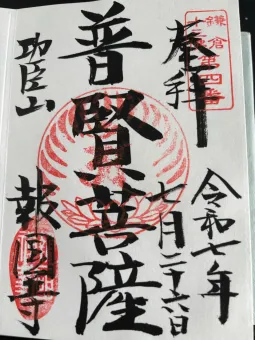 鎌倉第四番
奉拝
令和七年
七月二十六日
普賢菩薩
功臣山
報国寺